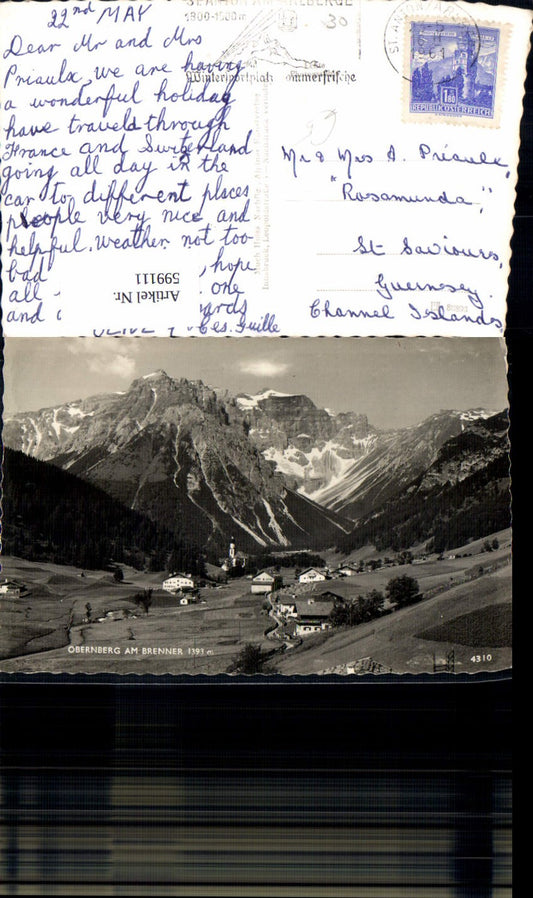 22nd MAY
Dear Mr and Mrs
Priaulx, we are having
a wonderful holiday
have traveld through
France and Switerland
going all day in the
car to different places
people very nice and
helpful. Weather not too
bad , hope
all . one
and ards
ST ANTON AM ARLBERG
1300-1500m
Wintersportplatz ommerfrische
ST ANTON
REPUBLIK ÖSTERREICH
1.80
Mr & Mrs A. Priaulx,
"Rosamunda",
St Saviours,
Guernsey.
Channel Islands,
Artikel Nr.
599111
OBERNBERG AM BRENNER 1393 m
4310